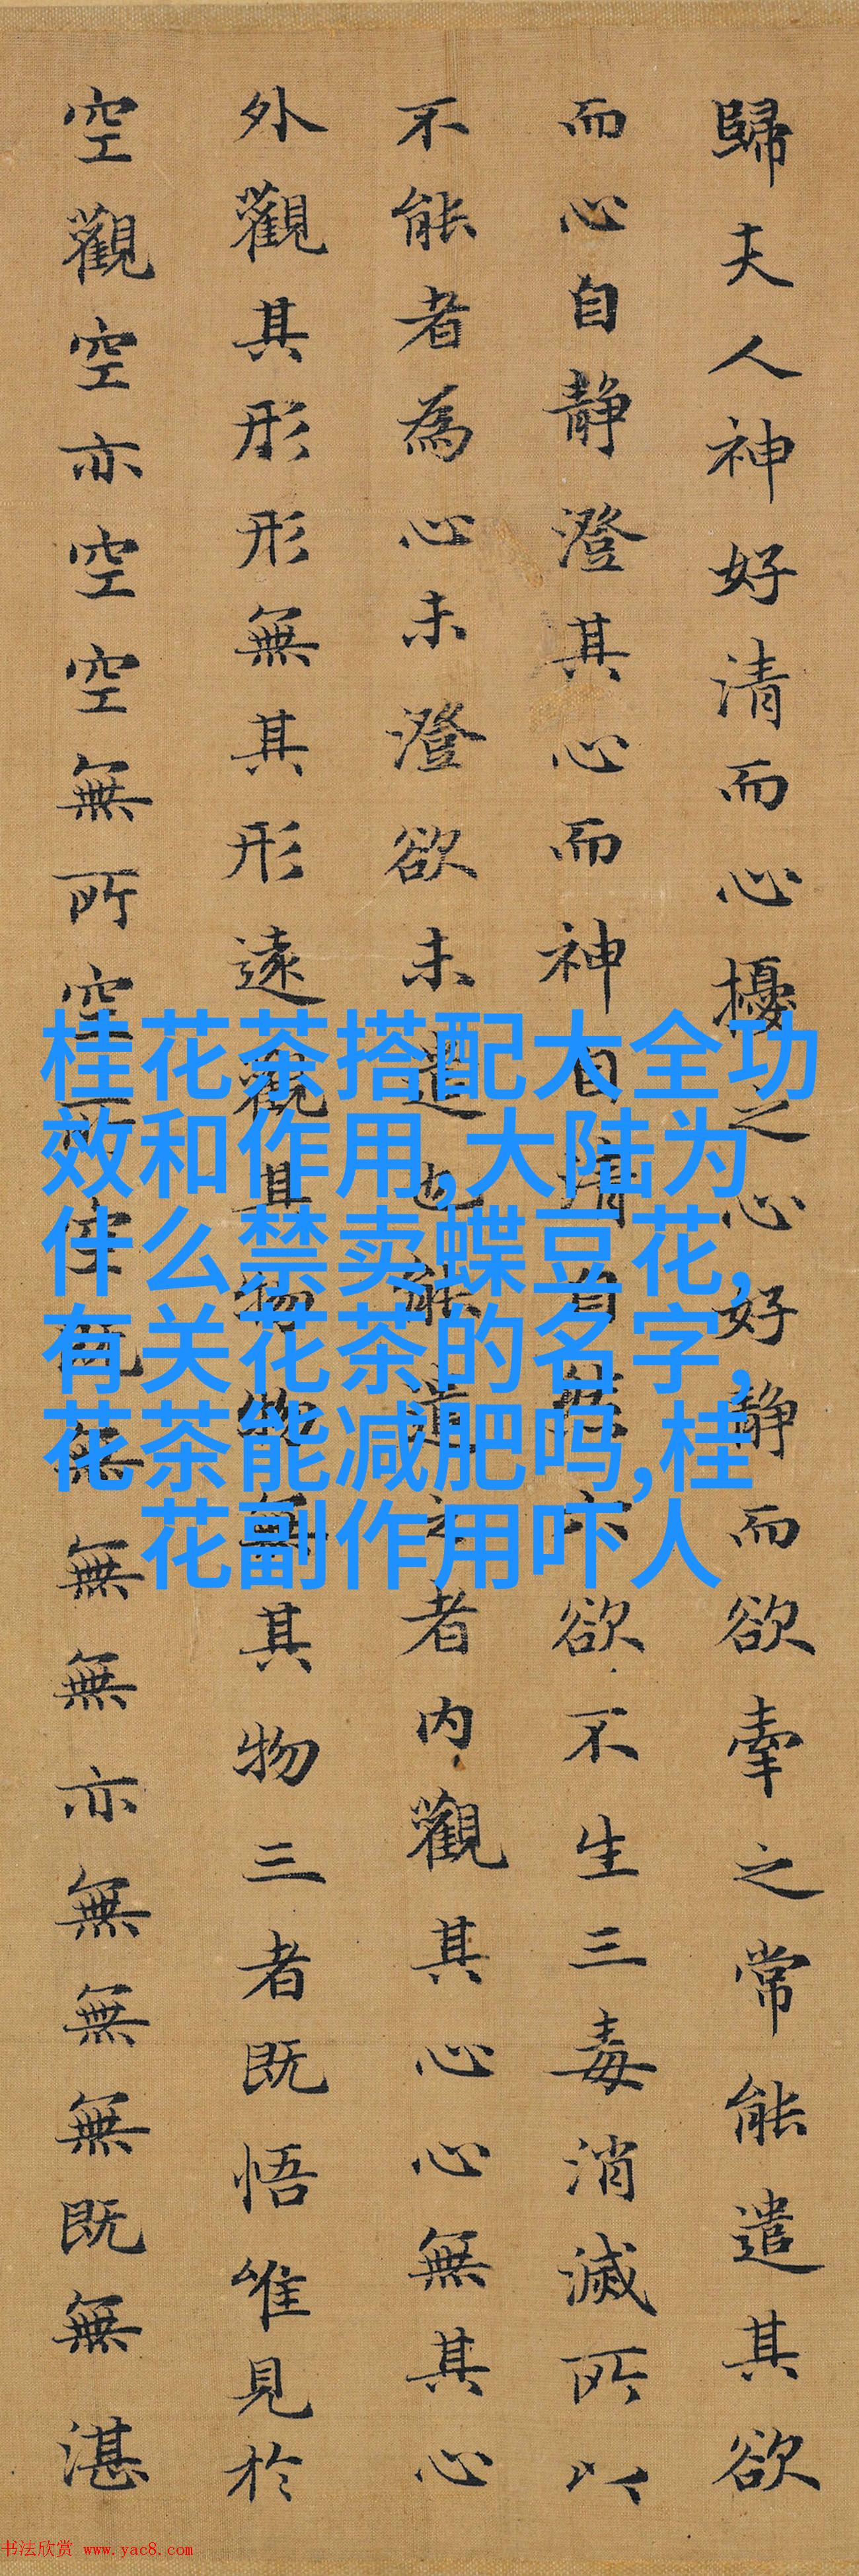 歸夫人神好清而心擾之心好静而欲牽之常能遣其欲
而心自静澄其心而神自清自然六欲不生三毒消滅所以
不能者為心未澄欲未遣也能遣之者内觀其心心無其心
外觀其形形無其形遠觀其物物無其物三者既悟唯見於
空觀空亦空空無所空所空既無無無亦無無無既無湛
桂花茶搭配大全功
效和作用,大陆为
什么禁卖蝶豆花,
有关花茶的名字,
花茶能减肥吗,桂
花副作用吓人
书法欣赏 www.yac8.com